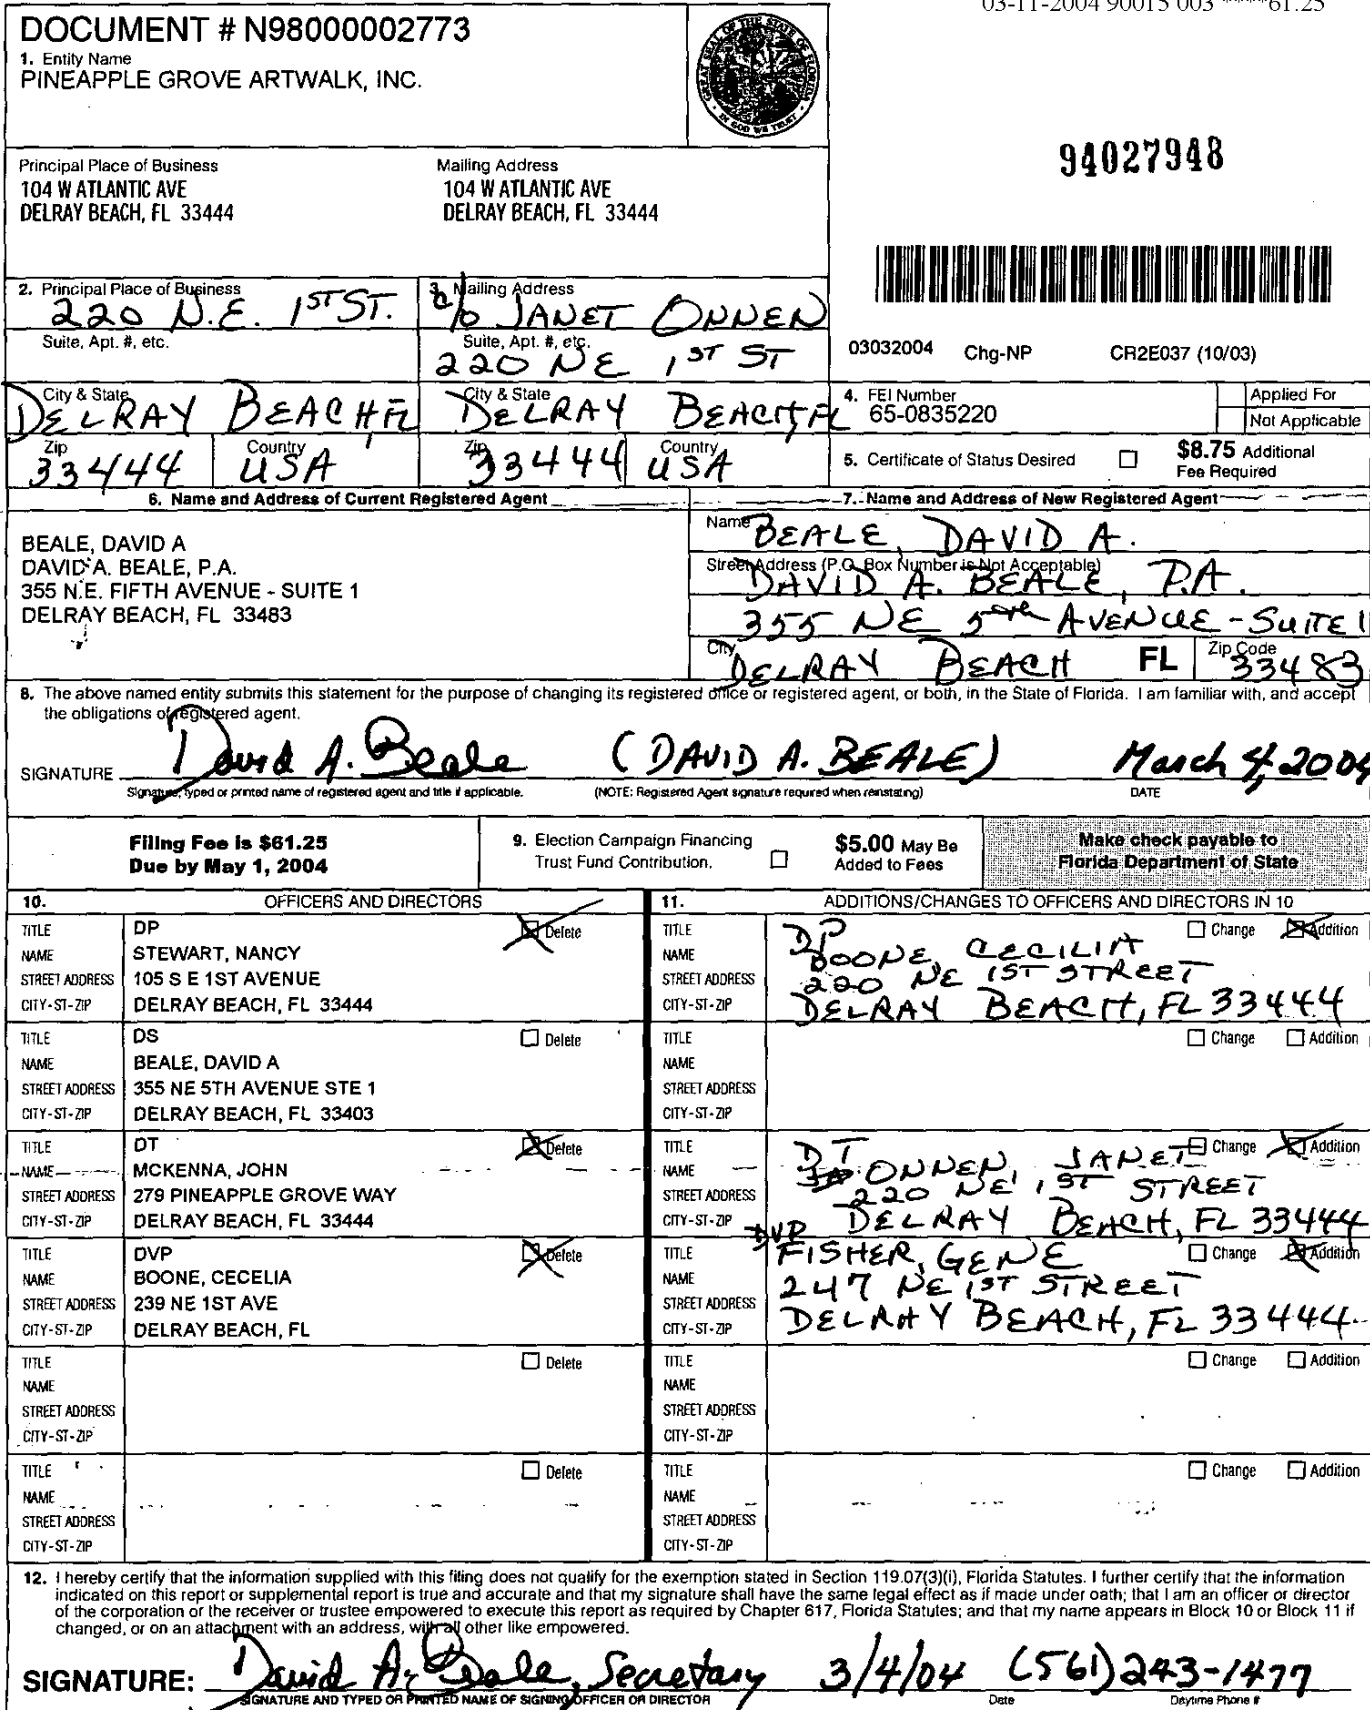 03-11-2004 90015 003 ****61.25
DOCUMENT # N98000002773
1. Entity Name
PINEAPPLE GROVE ARTWALK, INC.
GREAT SEAL OF THE STATE OF FLORIDA
IN GOD WE TRUST
94027948
Principal Place of Business
104 W ATLANTIC AVE
DELRAY BEACH, FL 33444
Mailing Address
104 W ATLANTIC AVE
DELRAY BEACH, FL 33444
2. Principal Place of Business
220 N.E. 1ST ST.
Suite, Apt. #, etc.
City & State
DELRAY BEACH, FL
Zip
33444
Country
USA
3. Mailing Address
c/o JANET ONNEN
Suite, Apt. #, etc.
220 NE 1ST ST
City & State
DELRAY BEACH, FL
Zip
33444
Country
USA
03032004 Chg-NP CR2E037 (10/03)
4. FEI Number
65-0835220
Applied For
Not Applicable
5. Certificate of Status Desired
$8.75 Additional
Fee Required
6. Name and Address of Current Registered Agent
BEALE, DAVID A
DAVID A. BEALE, P.A.
355 N.E. FIFTH AVENUE - SUITE 1
DELRAY BEACH, FL 33483
7. Name and Address of New Registered Agent
Name
BEALE, DAVID A.
Street Address (P.O. Box Number is Not Acceptable)
DAVID A. BEALE, P.A.
355 NE 5th AVENUE - SUITE 1
City
DELRAY BEACH
FL
Zip Code
33483
8. The above named entity submits this statement for the purpose of changing its registered office or registered agent, or both, in the State of Florida. I am familiar with, and accept
the obligations of registered agent.
SIGNATURE David A. Beale (DAVID A. BEALE) March 4, 2004
Signature, typed or printed name of registered agent and title if applicable. (NOTE: Registered Agent signature required when reinstating) DATE
Filing Fee is $61.25
Due by May 1, 2004
9. Election Campaign Financing
Trust Fund Contribution.
$5.00 May Be
Added to Fees
Make check payable to
Florida Department of State
10. OFFICERS AND DIRECTORS
11. ADDITIONS/CHANGES TO OFFICERS AND DIRECTORS IN 10
TITLE DP Delete
NAME STEWART, NANCY
STREET ADDRESS 105 S E 1ST AVENUE
CITY-ST-ZIP DELRAY BEACH, FL 33444
TITLE DP Change Addition
NAME BOONE, CECILIA
STREET ADDRESS 220 NE 1ST STREET
CITY-ST-ZIP DELRAY BEACH, FL 33444
TITLE DS Delete
NAME BEALE, DAVID A
STREET ADDRESS 355 NE 5TH AVENUE STE 1
CITY-ST-ZIP DELRAY BEACH, FL 33403
TITLE Change Addition
NAME
STREET ADDRESS
CITY-ST-ZIP
TITLE DT Delete
NAME MCKENNA, JOHN
STREET ADDRESS 279 PINEAPPLE GROVE WAY
CITY-ST-ZIP DELRAY BEACH, FL 33444
TITLE DT Change Addition
NAME ONNEN, JANET
STREET ADDRESS 220 NE 1ST STREET
CITY-ST-ZIP DELRAY BEACH, FL 33444
TITLE DVP Delete
NAME BOONE, CECELIA
STREET ADDRESS 239 NE 1ST AVE
CITY-ST-ZIP DELRAY BEACH, FL
DVP
TITLE FISHER, GENE Change Addition
NAME 247 NE 1ST STREET
STREET ADDRESS DELRAY BEACH, FL 33444
CITY-ST-ZIP
TITLE Delete
NAME
STREET ADDRESS
CITY-ST-ZIP
TITLE Change Addition
NAME
STREET ADDRESS
CITY-ST-ZIP
TITLE Delete
NAME
STREET ADDRESS
CITY-ST-ZIP
TITLE Change Addition
NAME
STREET ADDRESS
CITY-ST-ZIP
12. I hereby certify that the information supplied with this filing does not qualify for the exemption stated in Section 119.07(3)(i), Florida Statutes. I further certify that the information
indicated on this report or supplemental report is true and accurate and that my signature shall have the same legal effect as if made under oath; that I am an officer or director
of the corporation or the receiver or trustee empowered to execute this report as required by Chapter 617, Florida Statutes; and that my name appears in Block 10 or Block 11 if
changed, or on an attachment with an address, with all other like empowered.
SIGNATURE: David A. Beale, Secretary 3/4/04 (561)243-1477
SIGNATURE AND TYPED OR PRINTED NAME OF SIGNING OFFICER OR DIRECTOR Date Daytime Phone #